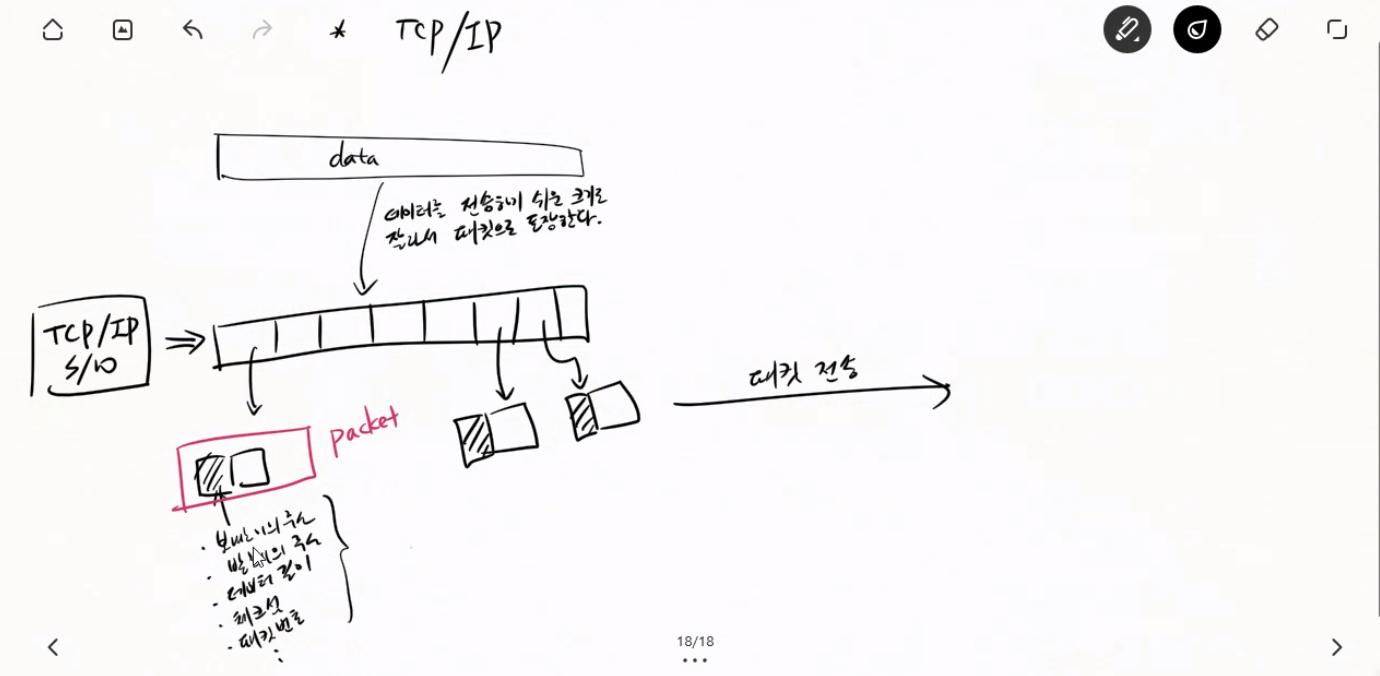 * TCP/IP
data
데이터를 전송하기 쉬운 크기로
잘라서 패킷으로 포장한다.
TCP/IP
S/W
패킷 전송
packet
· 보내는이의 주소
· 받는이의 주소
· 데이터 길이
· 체크섬
· 패킷번호
18/18